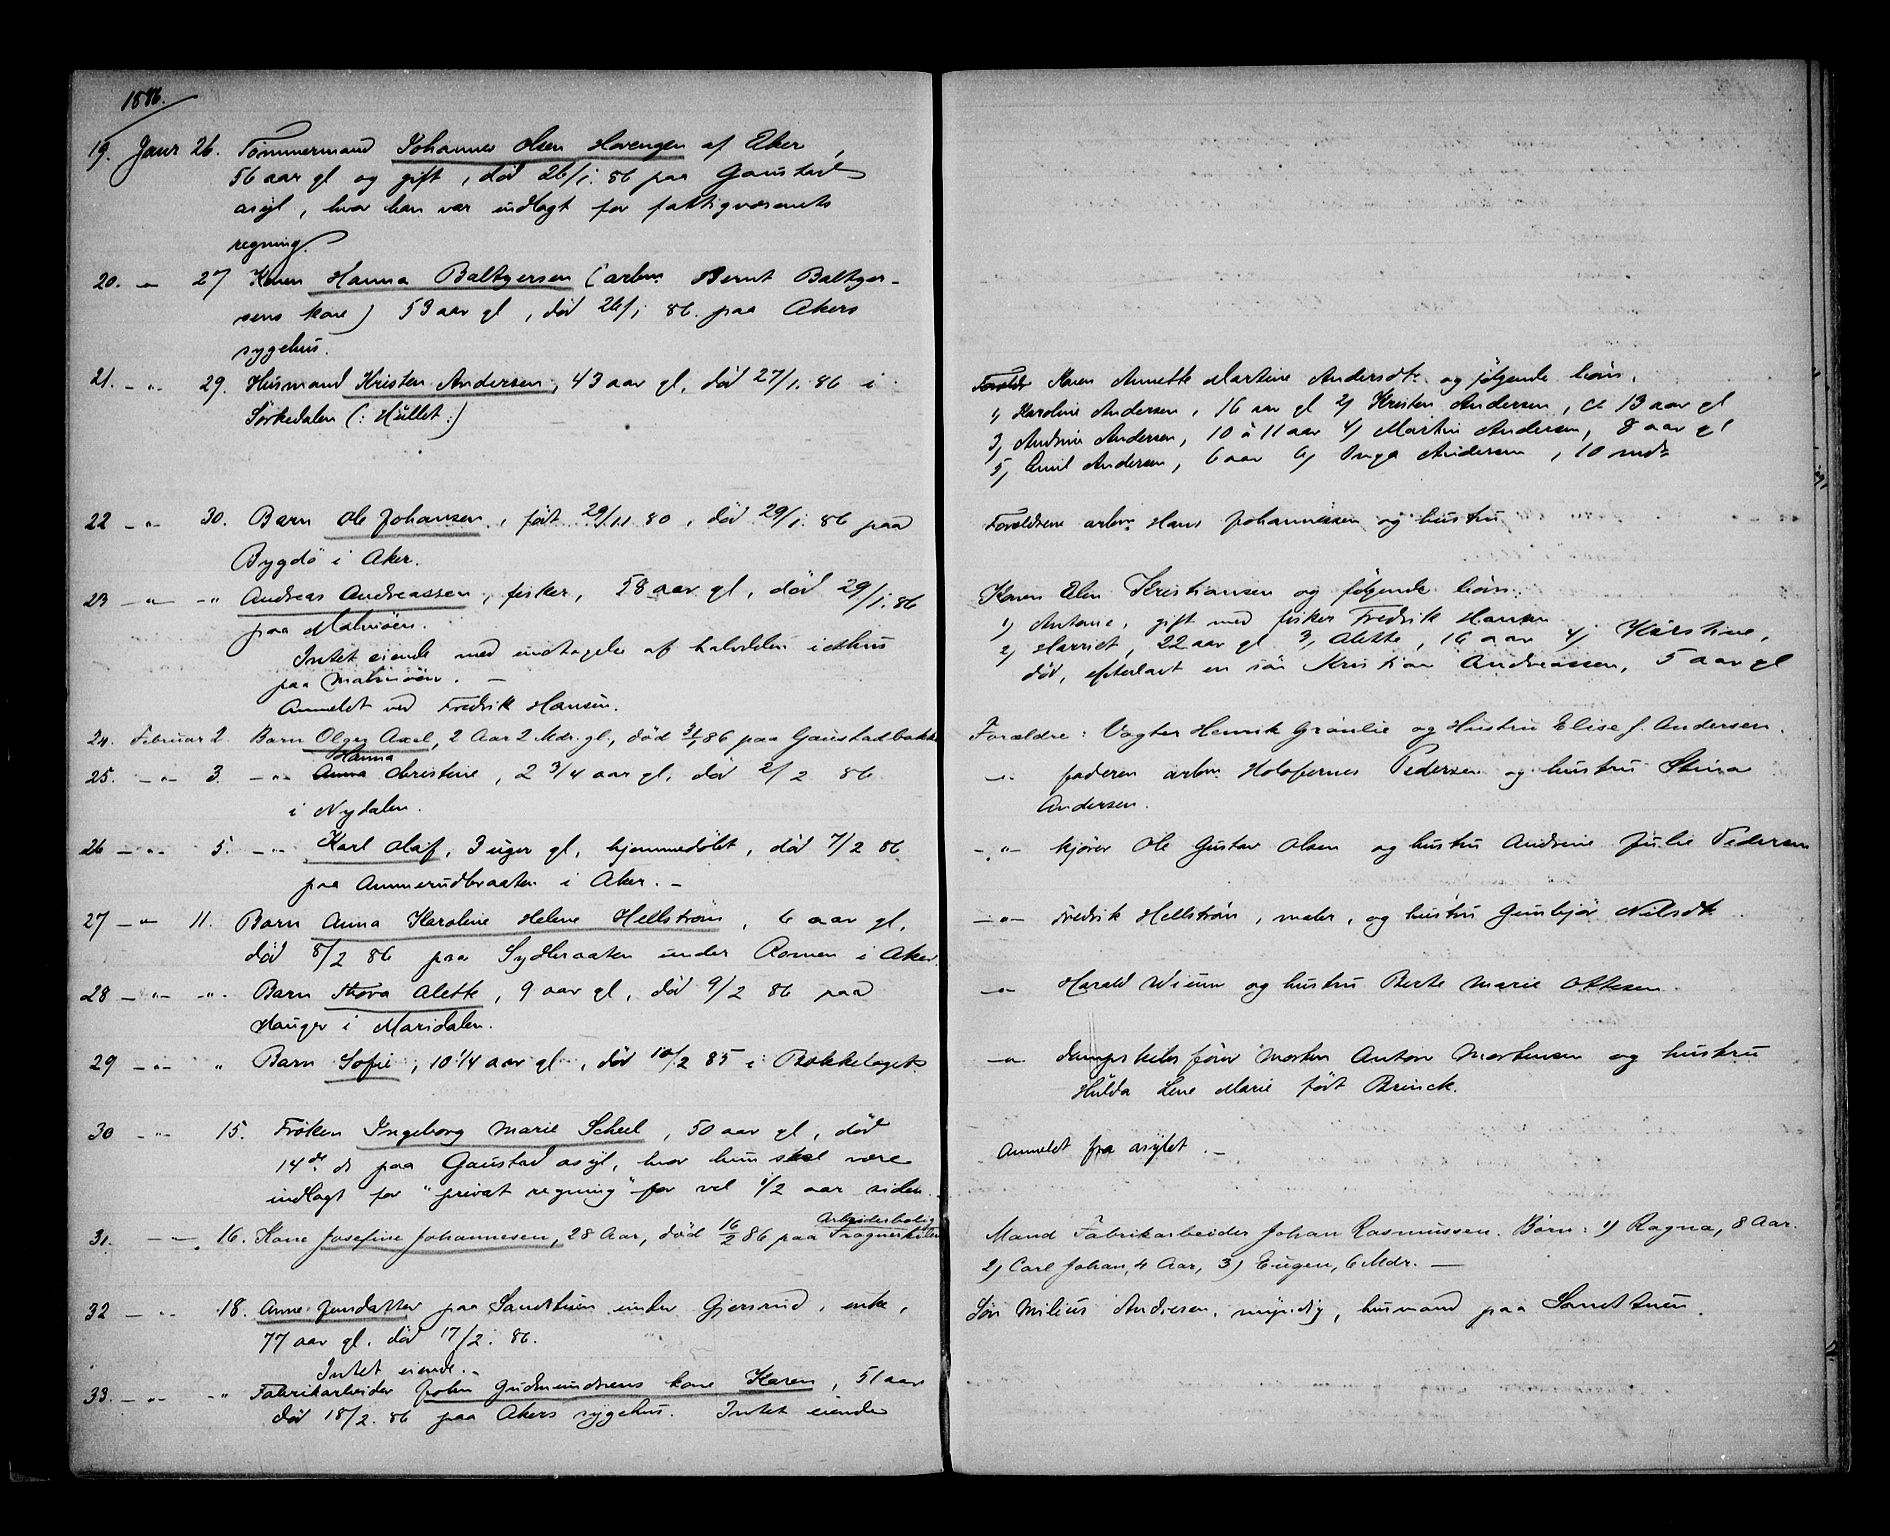 1886.
19. Janr 26. Tømmermand Johannes Olsen Havengen af Aker,
56 aar gl og gift, død 26/1. 86 paa Gaustad
asyl, hvor han var indlagt for fattigvæsenets
regning.
20. -„- 27 Konen Hanna Baltzersen (arbm. Bernt Baltzer-
sens kone) 53 aar gl, død 26/1 86. paa Akers
sygehus.
21. -„- 29. Husmand Kristen Andersen, 43 aar gl, død 27/1. 86 i
Sørkedalen (: Hullet :)
22 -„- 30. Barn Ole Johansen, født 29/11 80, død 29/1. 86 paa
Bygdø i Aker.
23 -„- -„ Andreas Andreassen, fisker, 58 aar gl, død 29/1. 86
paa Malmøen.
Intet eiende med undtagelse af halvdelen i et hus
paa Malmøen. -
Anmeldt ved Fredrik Hansen.
24. Februar 2. Barn Olger Axel, 2 Aar 2 Mdr. gl., død 31/1 86 paa Gaustadbakk
Hanna
25. -„- 3. -„- Anna Christine, 2 3/4 aar gl, død 2/2 86
i Nydalen.
26 -„- 5. -„- Karl Olaf, 3 uger gl, hjemmedøbt, død 7/2 86
paa Ammerudbraaten i Aker. -
27 -„- 11. Barn Anna Karoline Helene Hellstrøm, 6 aar gl,
død 8/2 86 paa Sydbraaten under Rommen i Aker.
28 -„- -„- Barn Thora Alette, 9 aar gl, død 9/2 86 paa
Hauger i Maridalen.
29 -„- „ Barn Sofie, 10 1/4 aar gl, død 10/2 85 i Bækkelaget
30 -„- 15. Frøken Ingeborg Marie Scheel, 50 aar gl, død
14de ds paa Gaustad asyl, hvor hun skal være
indlagt for "privat regning" for vel 1/2 aar siden.
Arbeiderbolig
31. -„- 16. Kone Josefine Johannesen, 28 Aar, død 16/2 86 paa Frognerkilen
32 -„- 18. Anne Jensdatter paa Sandtuen under Gjersrud, enke,
77 aar gl. død 17/2. 86.
Intet eiende. -
33. -„- -„ Fabrikarbeider John Gudmundsens kone Karen, 51 aar
død 18/2. 86 paa Akers sygehus. Intet eiende
Konen Annette Martine Andersdtr og følgende børn.
1) Karoline Andersen, 16 aar gl 2) Kristen Andersen, ca 13 aar gl
3) Andrine Andersen, 10 à 11 aar 4) Martin Andersen, 8 aar gl
5) Emil Andersen, 6 aar 6) Inga Andersen, 10 mdr
Forældrene arbm. Hans Johannessen og hustru
Konen Elen Kristiansen og følgende børn:
1) Antonie, gift med fisker Fredrik Hansen
2) Harriet, 22 aar gl 3) Alette, 16 aar 4) Kirstine,
død, efterladt en søn Kristian Andreassen, 5 aar gl
Forældre: Vogter Henrik Grønlie og Hustru Elise f. Andersen.
-„- faderen arbm Holofernes Pedersen og hustru Stina
Andersen.
-„- kjører Ole Gustav Olsen og hustru Andrine Julie Pedersen
-„- Fredrik Hellstrøm, maler, og hustru Gunbjør Nilsdtr.
-„- Harald Wium og hustru Berte Marie Ottesen
-„- dampskibsfører Morten Anton Mortensen og hustru
Hulda Lene Marie født Brinck.
Anmeldt fra asylet. -
Mand Fabrikarbeider Johan Rasmussen. Børn: 1) Ragna, 8 Aar.
2) Carl Johan, 4 Aar, 3) Eugen, 6 Mdr. —
Søn Milius Andersen, myndig, husmand paa Sandtuen.